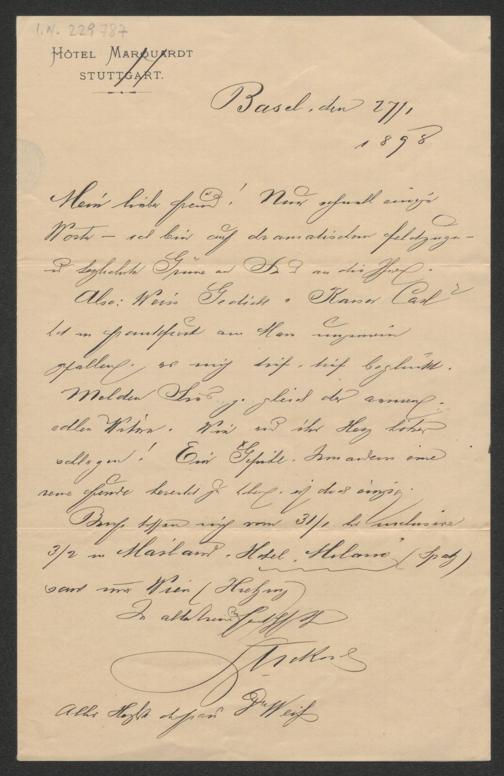 I.N. 229787
HÔTEL MARQUARDT
STUTTGART.
Basel, den 27/1
1898
Mein lieber Freund! Nur schnell einige
Worte – ich bin auf dramatischem Feldzuge –
Grüsse an Sie und an die
Also: Weins Gedicht Kaiser Carl
hat in Frankfurt am Main ungemein
gefallen. mich tief, tief beglückt.
Melden Sie gleich der armen,
edlen Witwe. Wie wird ihr Herz höher
schlagen! Ein Gefühl, Jemandem eine
reine Freude bereitet zu haben, ist doch einzig.
Briefe treffen mich vom 31/1 bis inclusive
3/2 in Mailand, Hotel Milano (Spatz)
sonst nur Wien (Hietzing)
In alter Freundschaft
Alles Herzliche